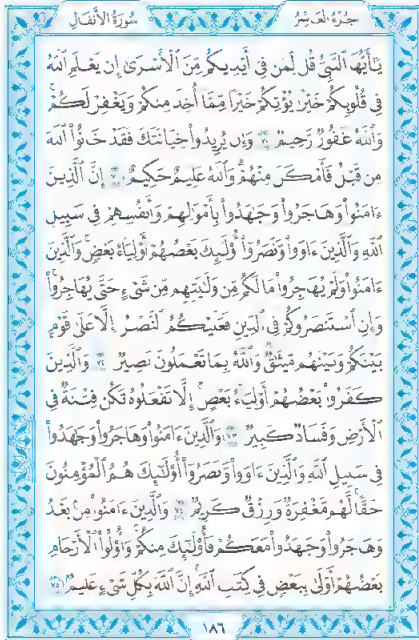 سُورَةُ الأَنفَالِ
الجُزْءُ العَاشِرُ
يَٰٓأَيُّهَا ٱلنَّبِىُّ قُل لِّمَن فِىٓ أَيْدِيكُم مِّنَ ٱلْأَسْرَىٰٓ إِن يَعْلَمِ ٱللَّهُ
فِى قُلُوبِكُمْ خَيْرًا يُؤْتِكُمْ خَيْرًا مِّمَّآ أُخِذَ مِنكُمْ وَيَغْفِرْ لَكُمْ ۗ
وَٱللَّهُ غَفُورٌ رَّحِيمٌ ٧٠ وَإِن يُرِيدُوا۟ خِيَانَتَكَ فَقَدْ خَانُوا۟ ٱللَّهَ
مِن قَبْلُ فَأَمْكَنَ مِنْهُمْ ۗ وَٱللَّهُ عَلِيمٌ حَكِيمٌ ٧١ إِنَّ ٱلَّذِينَ
ءَامَنُوا۟ وَهَاجَرُوا۟ وَجَٰهَدُوا۟ بِأَمْوَٰلِهِمْ وَأَنفُسِهِمْ فِى سَبِيلِ
ٱللَّهِ وَٱلَّذِينَ ءَاوَوا۟ وَّنَصَرُوٓا۟ أُو۟لَٰٓئِكَ بَعْضُهُمْ أَوْلِيَآءُ بَعْضٍ ۚ وَٱلَّذِينَ
ءَامَنُوا۟ وَلَمْ يُهَاجِرُوا۟ مَا لَكُم مِّن وَلَٰيَتِهِم مِّن شَىْءٍ حَتَّىٰ يُهَاجِرُوا۟ ۚ
وَإِنِ ٱسْتَنصَرُوكُمْ فِى ٱلدِّينِ فَعَلَيْكُمُ ٱلنَّصْرُ إِلَّا عَلَىٰ قَوْمٍۭ
بَيْنَكُمْ وَبَيْنَهُم مِّيثَٰقٌ ۗ وَٱللَّهُ بِمَا تَعْمَلُونَ بَصِيرٌ ٧٢ وَٱلَّذِينَ
كَفَرُوا۟ بَعْضُهُمْ أَوْلِيَآءُ بَعْضٍ ۚ إِلَّا تَفْعَلُوهُ تَكُن فِتْنَةٌ فِى
ٱلْأَرْضِ وَفَسَادٌ كَبِيرٌ ٧٣ وَٱلَّذِينَ ءَامَنُوا۟ وَهَاجَرُوا۟ وَجَٰهَدُوا۟
فِى سَبِيلِ ٱللَّهِ وَٱلَّذِينَ ءَاوَوا۟ وَّنَصَرُوٓا۟ أُو۟لَٰٓئِكَ هُمُ ٱلْمُؤْمِنُونَ
حَقًّا ۚ لَّهُم مَّغْفِرَةٌ وَرِزْقٌ كَرِيمٌ ٧٤ وَٱلَّذِينَ ءَامَنُوا۟ مِنۢ بَعْدُ
وَهَاجَرُوا۟ وَجَٰهَدُوا۟ مَعَكُمْ فَأُو۟لَٰٓئِكَ مِنكُمْ ۚ وَأُو۟لُوا۟ ٱلْأَرْحَامِ
بَعْضُهُمْ أَوْلَىٰ بِبَعْضٍ فِى كِتَٰبِ ٱللَّهِ ۗ إِنَّ ٱللَّهَ بِكُلِّ شَىْءٍ عَلِيمٌۢ ٧٥
١٨٦